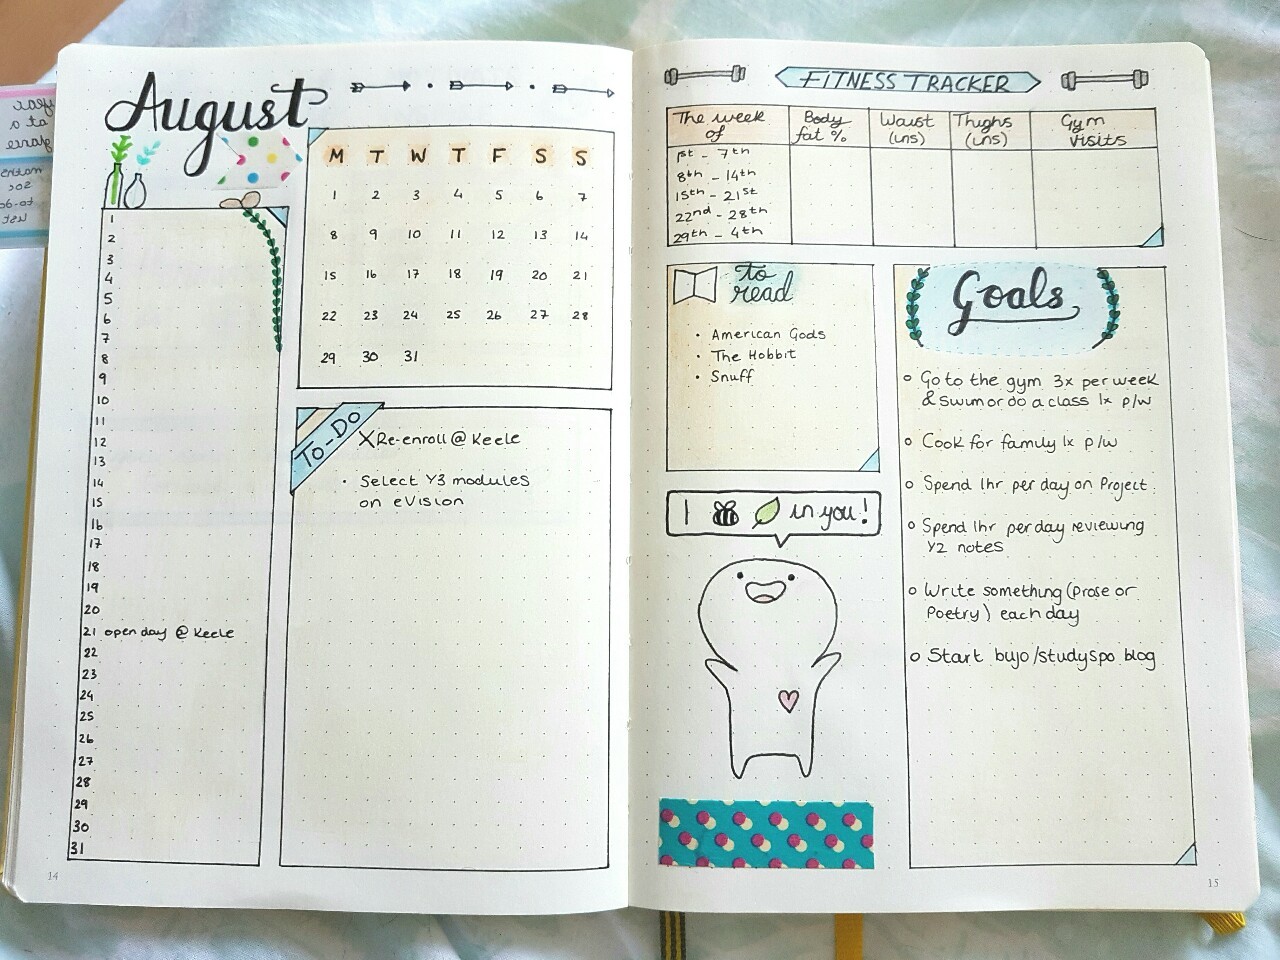 August
M T W T F S S
1 2 3 4 5 6 7
8 9 10 11 12 13 14
15 16 17 18 19 20 21
22 23 24 25 26 27 28
29 30 31
1
2
3
4
5
6
7
8
9
10
11
12
13
14
15
16
17
18
19
20
21 open day @ Keele
22
23
24
25
26
27
28
29
30
31
To-Do
X Re-enroll @ Keele
• Select Y3 modules
on eVision
14
FITNESS TRACKER
The week of Body fat % Waist (ins) Thighs (ins) Gym Visits
1st - 7th
8th - 14th
15th - 21st
22nd - 28th
29th - 4th
to
read
• American Gods
• The Hobbit
• Snuff
I in you!
Goals
Go to the gym 3x per week
& swim or do a class 1x p/w
Cook for family 1x p/w
Spend 1hr per day on Project.
Spend 1hr per day reviewing
Y2 notes
Write something (Prose or
Poetry) each day
Start bujo/studyspo blog
15